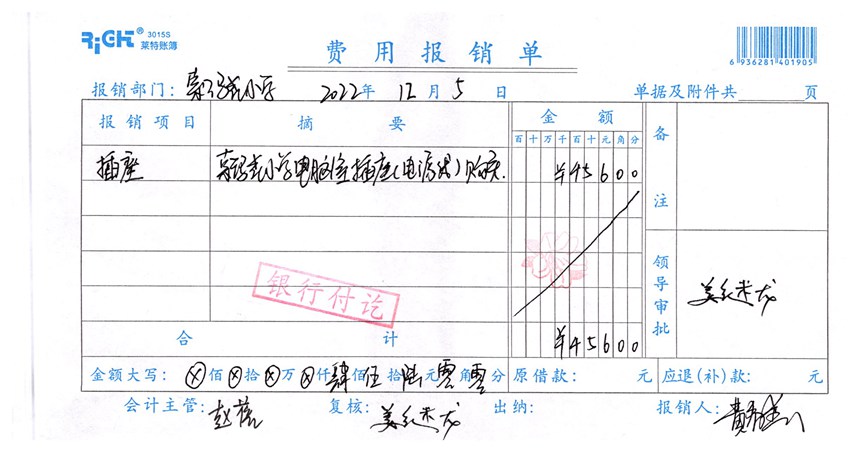 RiCHT® 3015S
莱特账簿
费用报销单
6 936281 401905
报销部门: 小学 2022年 12月 5日 单据及附件共 页
报销项目 摘要 金额 备注
百十万千百十元角分
插座 小学电脑室插座(电源线)购买. ¥45600
银行付讫
领导审批
合计 ¥45600
金额大写: ⊗佰⊗拾⊗万⊗仟肆佰伍拾陆元零角零分 原借款: 元 应退(补)款: 元
会计主管: 赵蓓 复核: 姜红杰 出纳: 报销人: 黄